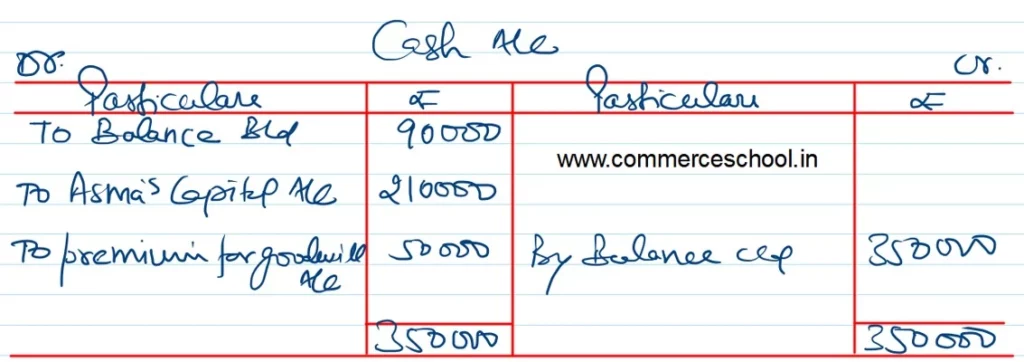 Cash A/c
Dr. Cr.
Particulars ₹ Particulars ₹
To Balance B/d 90000
www.commerceschool.in
To Asma's Capital A/c 210000
To premium for goodwill A/c 50000 By Balance c/d 350000
350000 350000